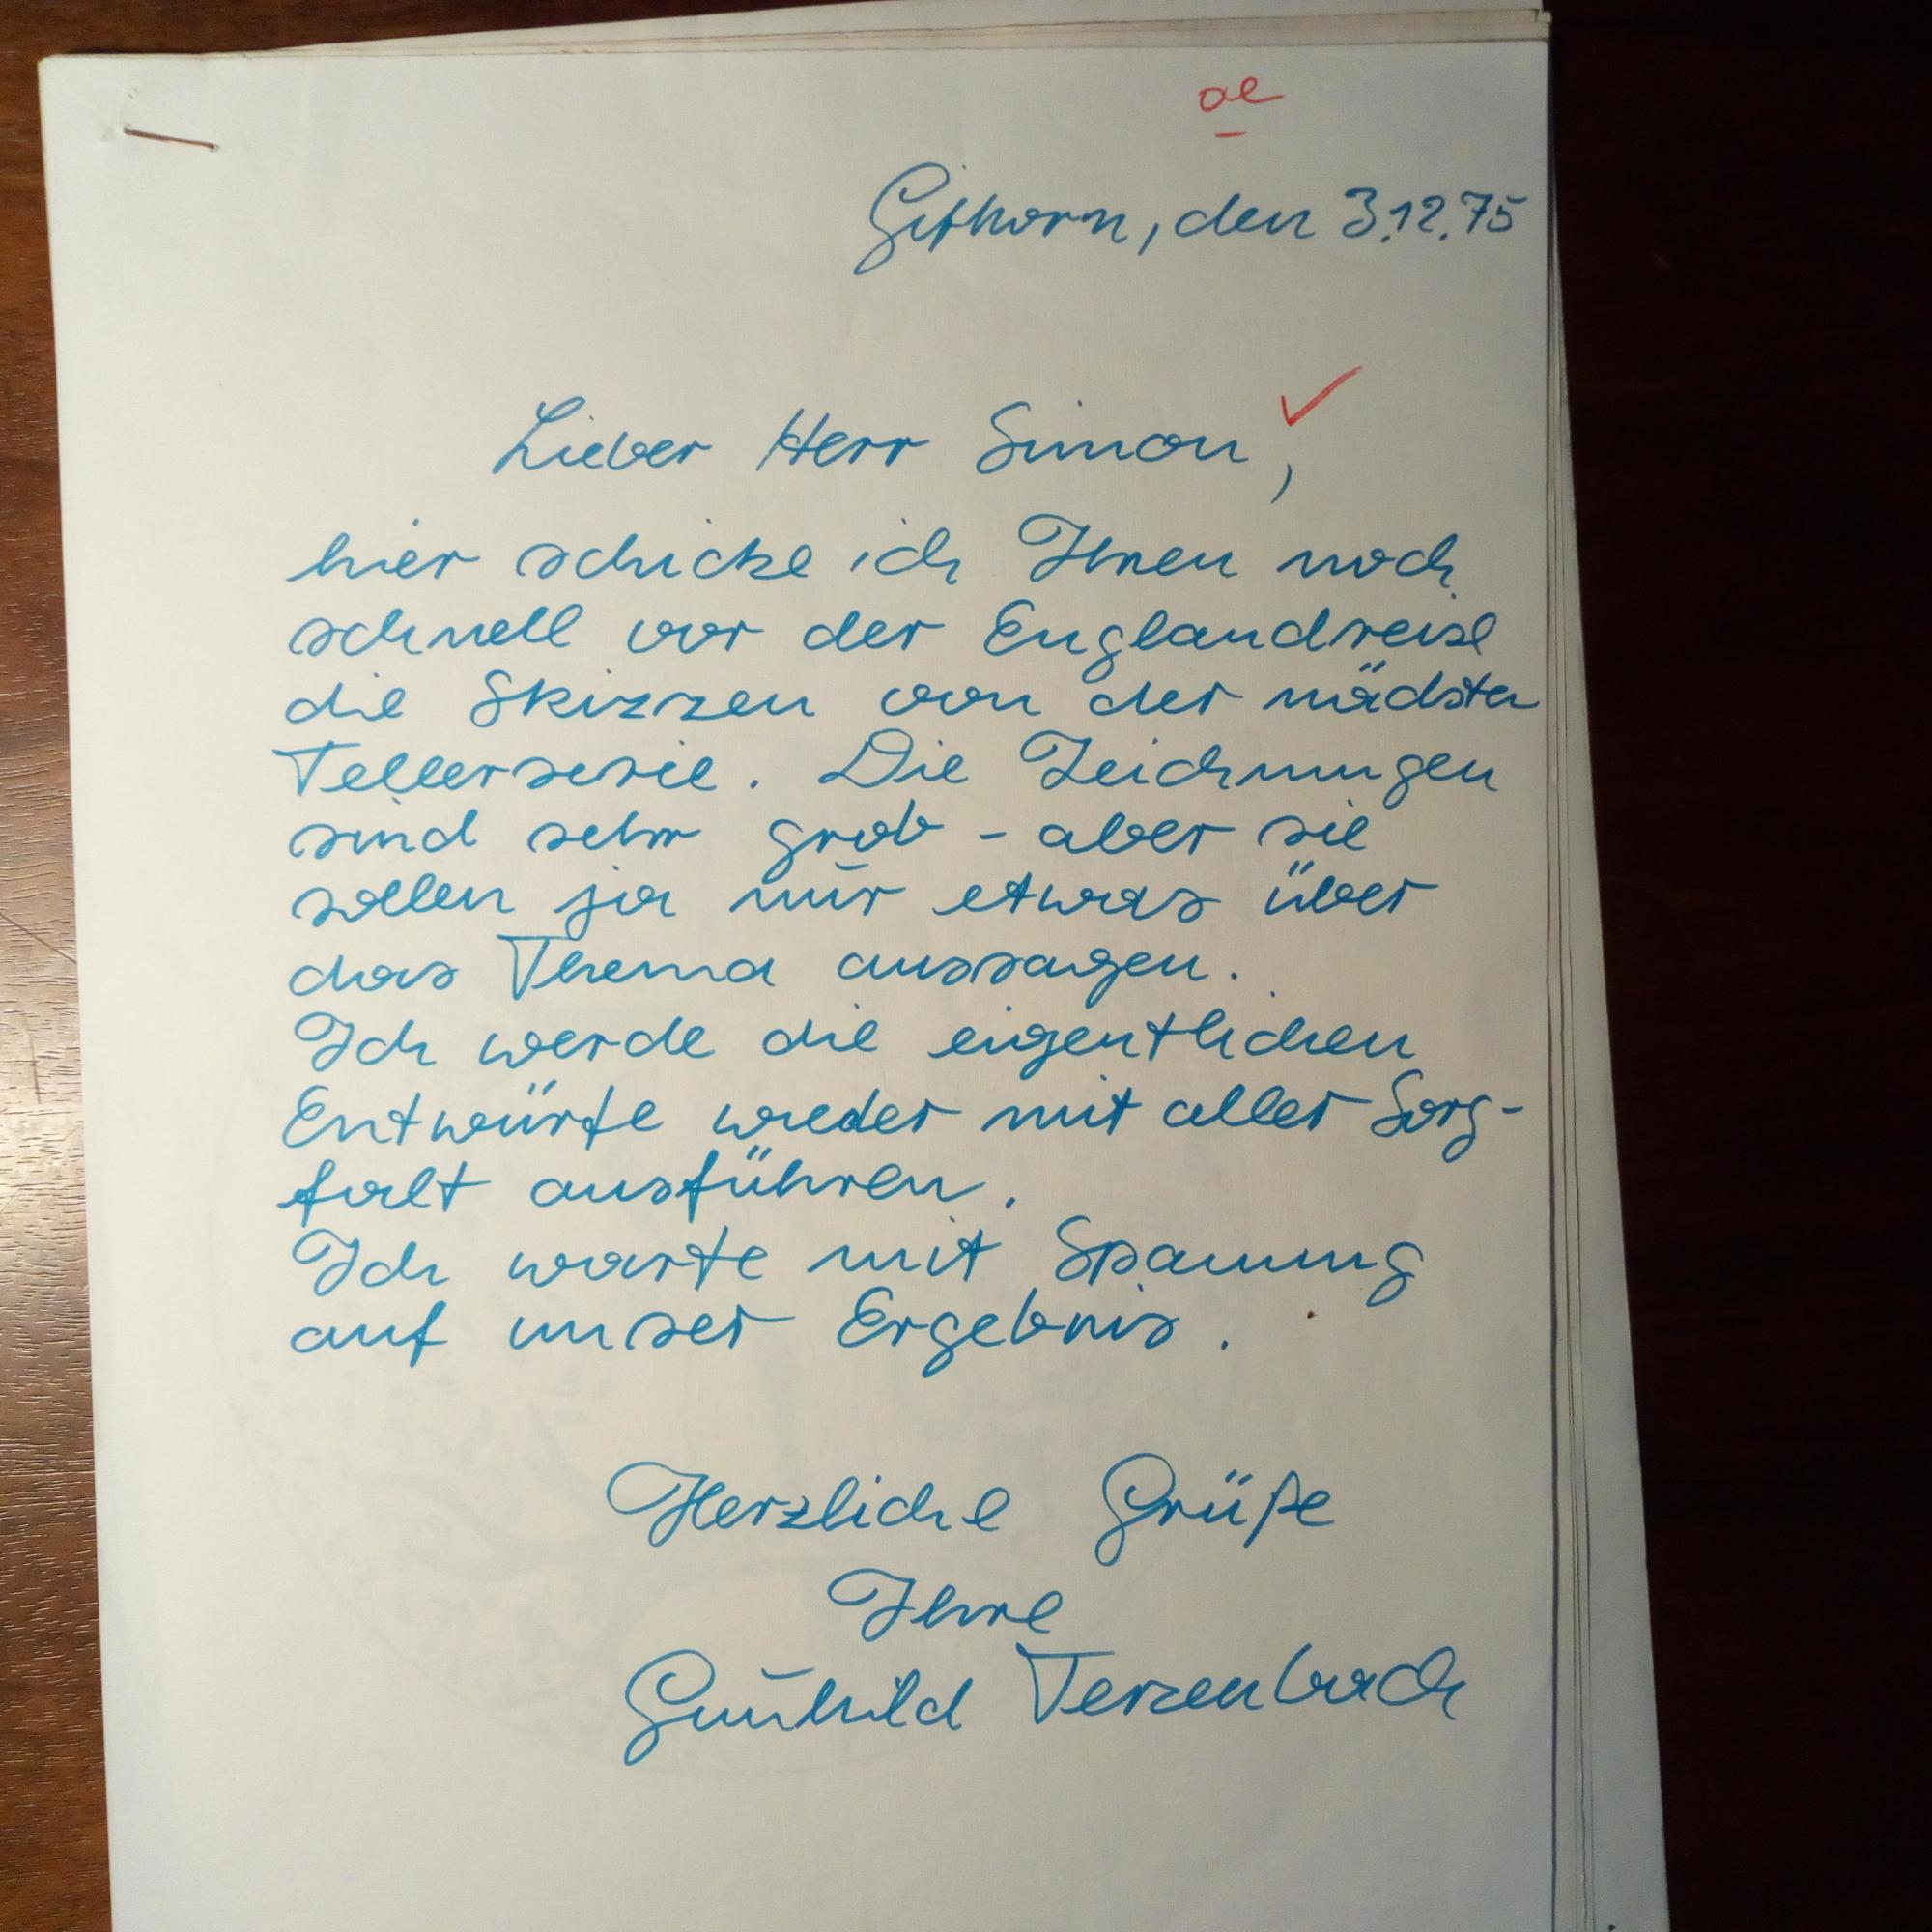 Gifhorn, den 3.12.75
Lieber Herr Simon,
hier schicke ich Ihnen noch
schnell vor der Englandreise
die Skizzen von der nächsten
Tellerserie. Die Zeichnungen
sind sehr grob - aber sie
sollen ja nur etwas über
das Thema aussagen.
Ich werde die eigentlichen
Entwürfe wieder mit aller Sorg-
falt ausführen.
Ich warte mit Spannung
auf unser Ergebnis.
Herzliche Grüße
Ihre
Gunhild